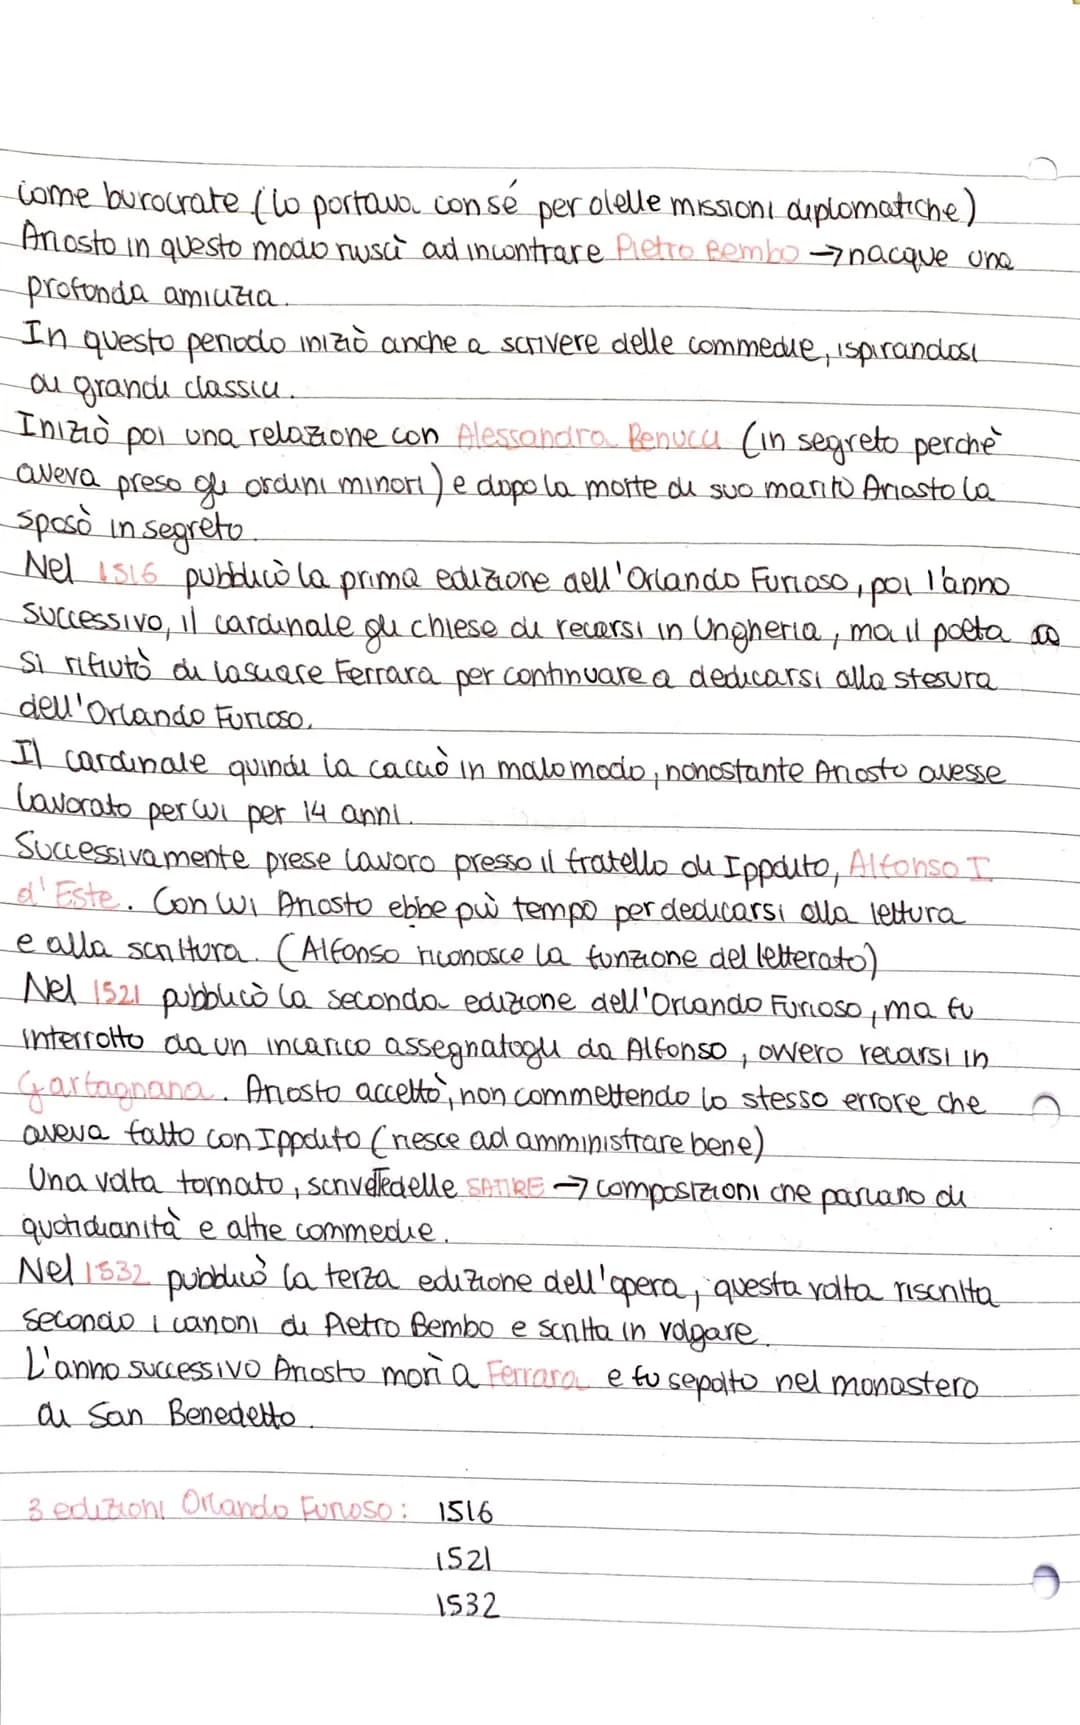 come burocrate (lo portava con sé per delle missioni diplomatiche)
Ariosto in questo modo riuscì ad incontrare Pietro Bembo → nacque una
profonda amicizia.
In questo periodo iniziò anche a scrivere delle commedie, ispirandosi
ai grandi classici.
Iniziò poi una relazione con Alessandra Benucci (in segreto perchè
aveva preso gli ordini minori) e dopo la morte di suo marito Ariosto la
sposò in segreto.
Nel 1516 pubblicò la prima edizione dell'Orlando Furioso, poi l'anno
successivo, il cardinale gli chiese di recarsi in Ungheria, ma il poeta
si rifiutò di lasciare Ferrara per continuare a dedicarsi alla stesura
dell'Orlando Furioso.
Il cardinale quindi la cacciò in malo modo, nonostante Ariosto avesse
lavorato per lui per 14 anni.
Successivamente prese lavoro presso il fratello di Ippolito, Alfonso I
d'Este. Con lui Ariosto ebbe più tempo per dedicarsi alla lettura
e alla scrittura. (Alfonso riconosce la funzione del letterato)
Nel 1521 pubblicò la seconda edizione dell'Orlando Furioso, ma fu
interrotto da un incarico assegnatogli da Alfonso, ovvero recarsi in
Garfagnana. Ariosto accettò, non commettendo lo stesso errore che
aveva fatto con Ippolito (riesce ad amministrare bene)
Una volta tornato, scrive delle SATIRE → composizioni che parlano di
quotidianità e altre commedie.
Nel 1532 pubblicò la terza edizione dell'opera, questa volta riscritta
secondo i canoni di Pietro Bembo e scritta in volgare.
L'anno successivo Ariosto morì a Ferrara e fu sepolto nel monastero
di San Benedetto.
3 edizioni Orlando Furioso: 1516
1521
1532